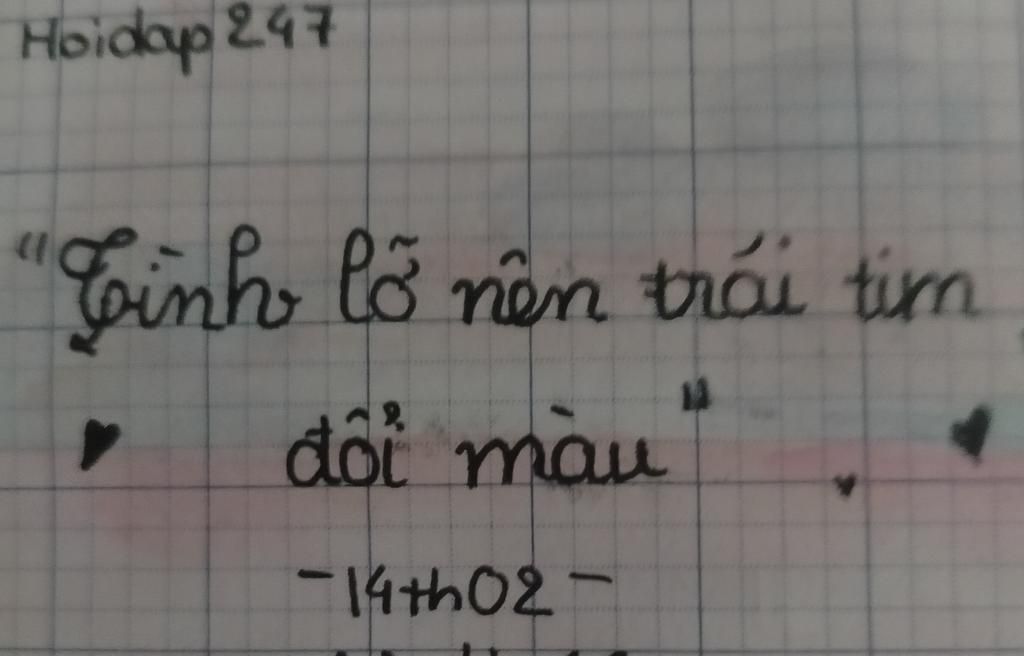 Hoidap247
"Tình lỡ nên trái tim
đổi màu"
-14th02-